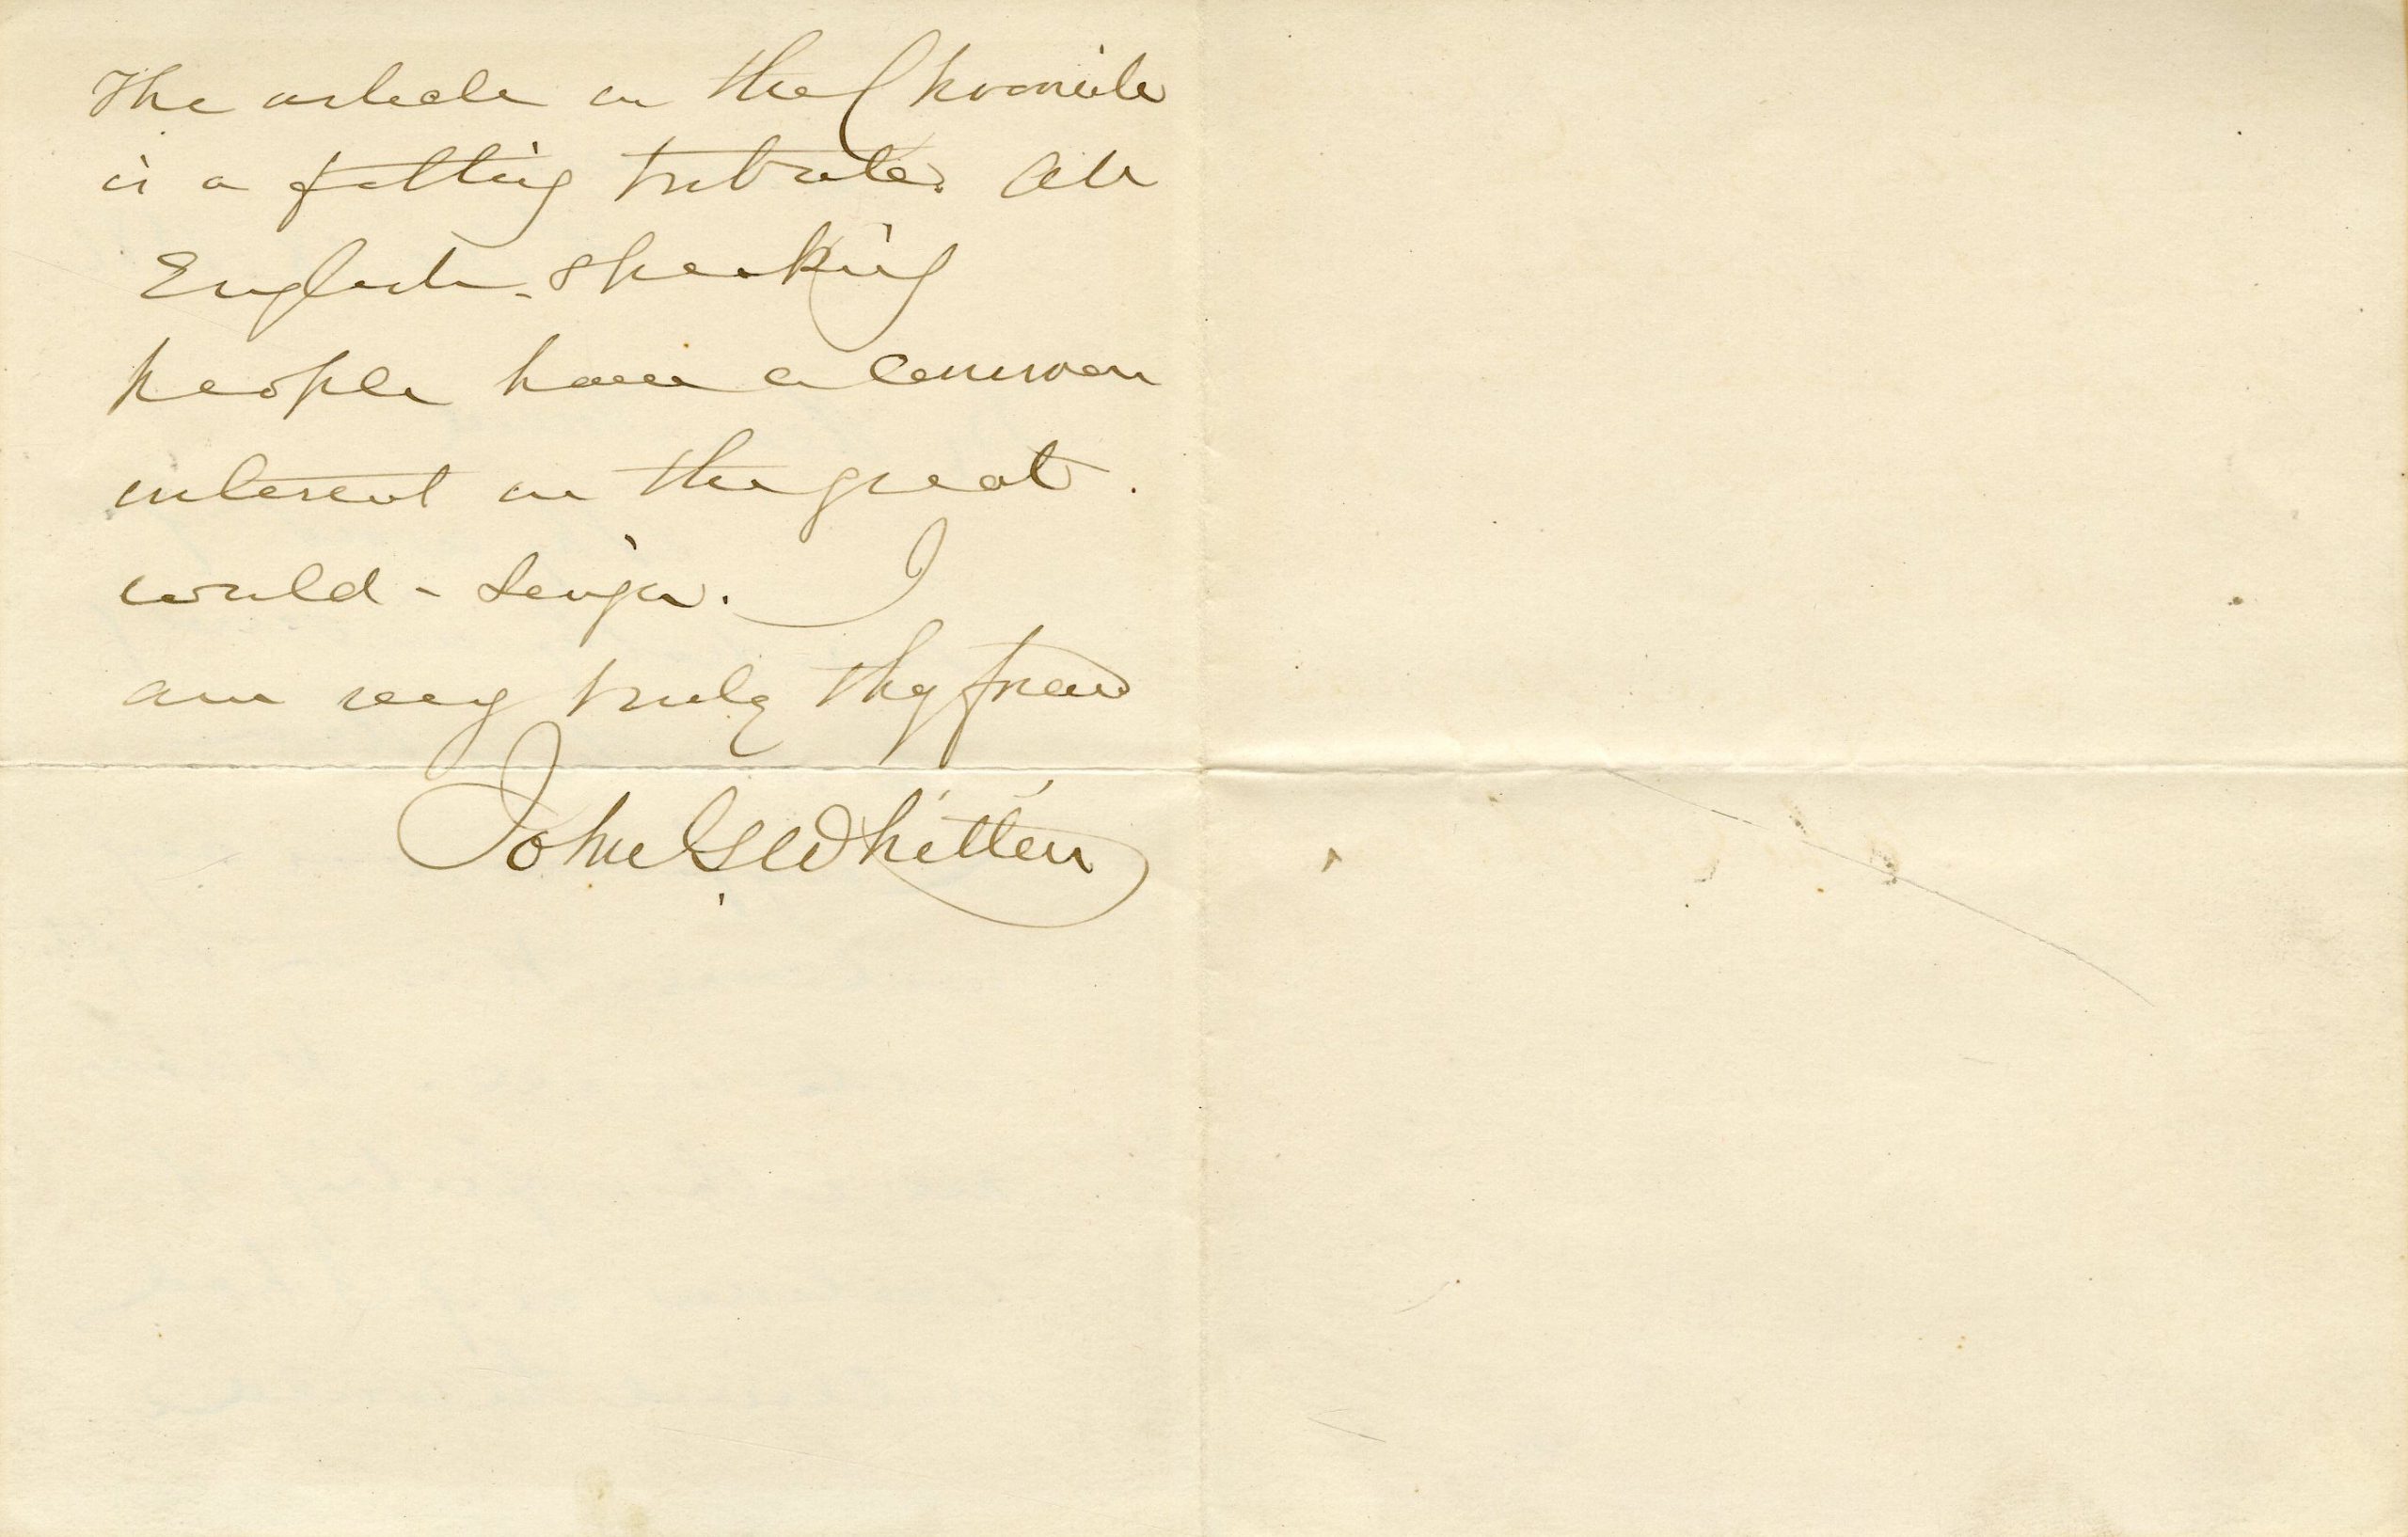 The article in the Chronicle
is a fitting tribute. All
English-speaking
people have a common
interest in the great
world-singer. I
am very truly thy friend
John G Whittier